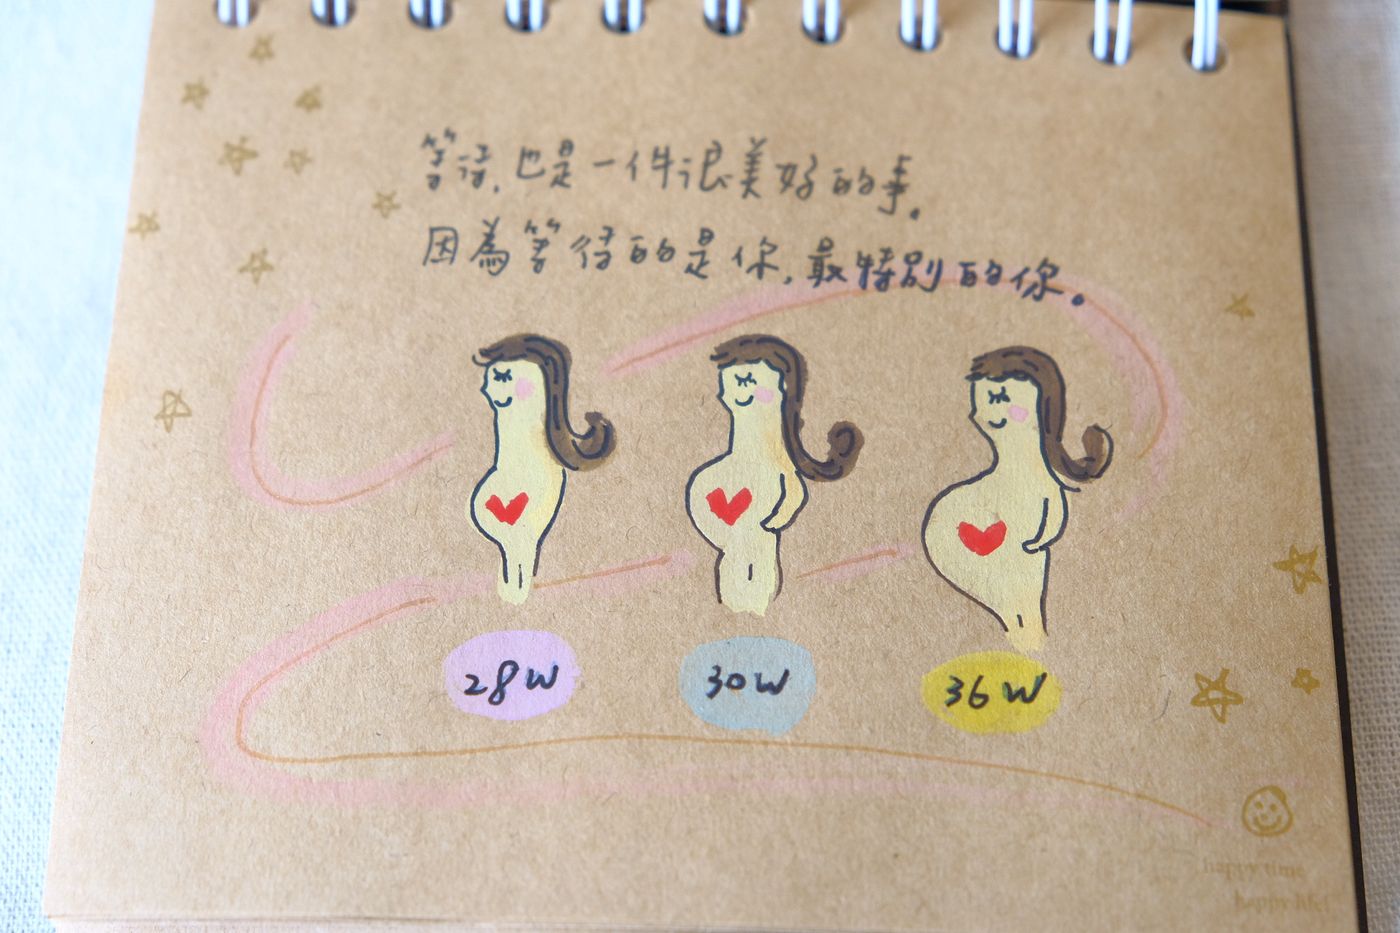 等待，也是一件很美好的事。
因為等待的是你，最特別的你。
28W
30W
36W
happy time
happy life!